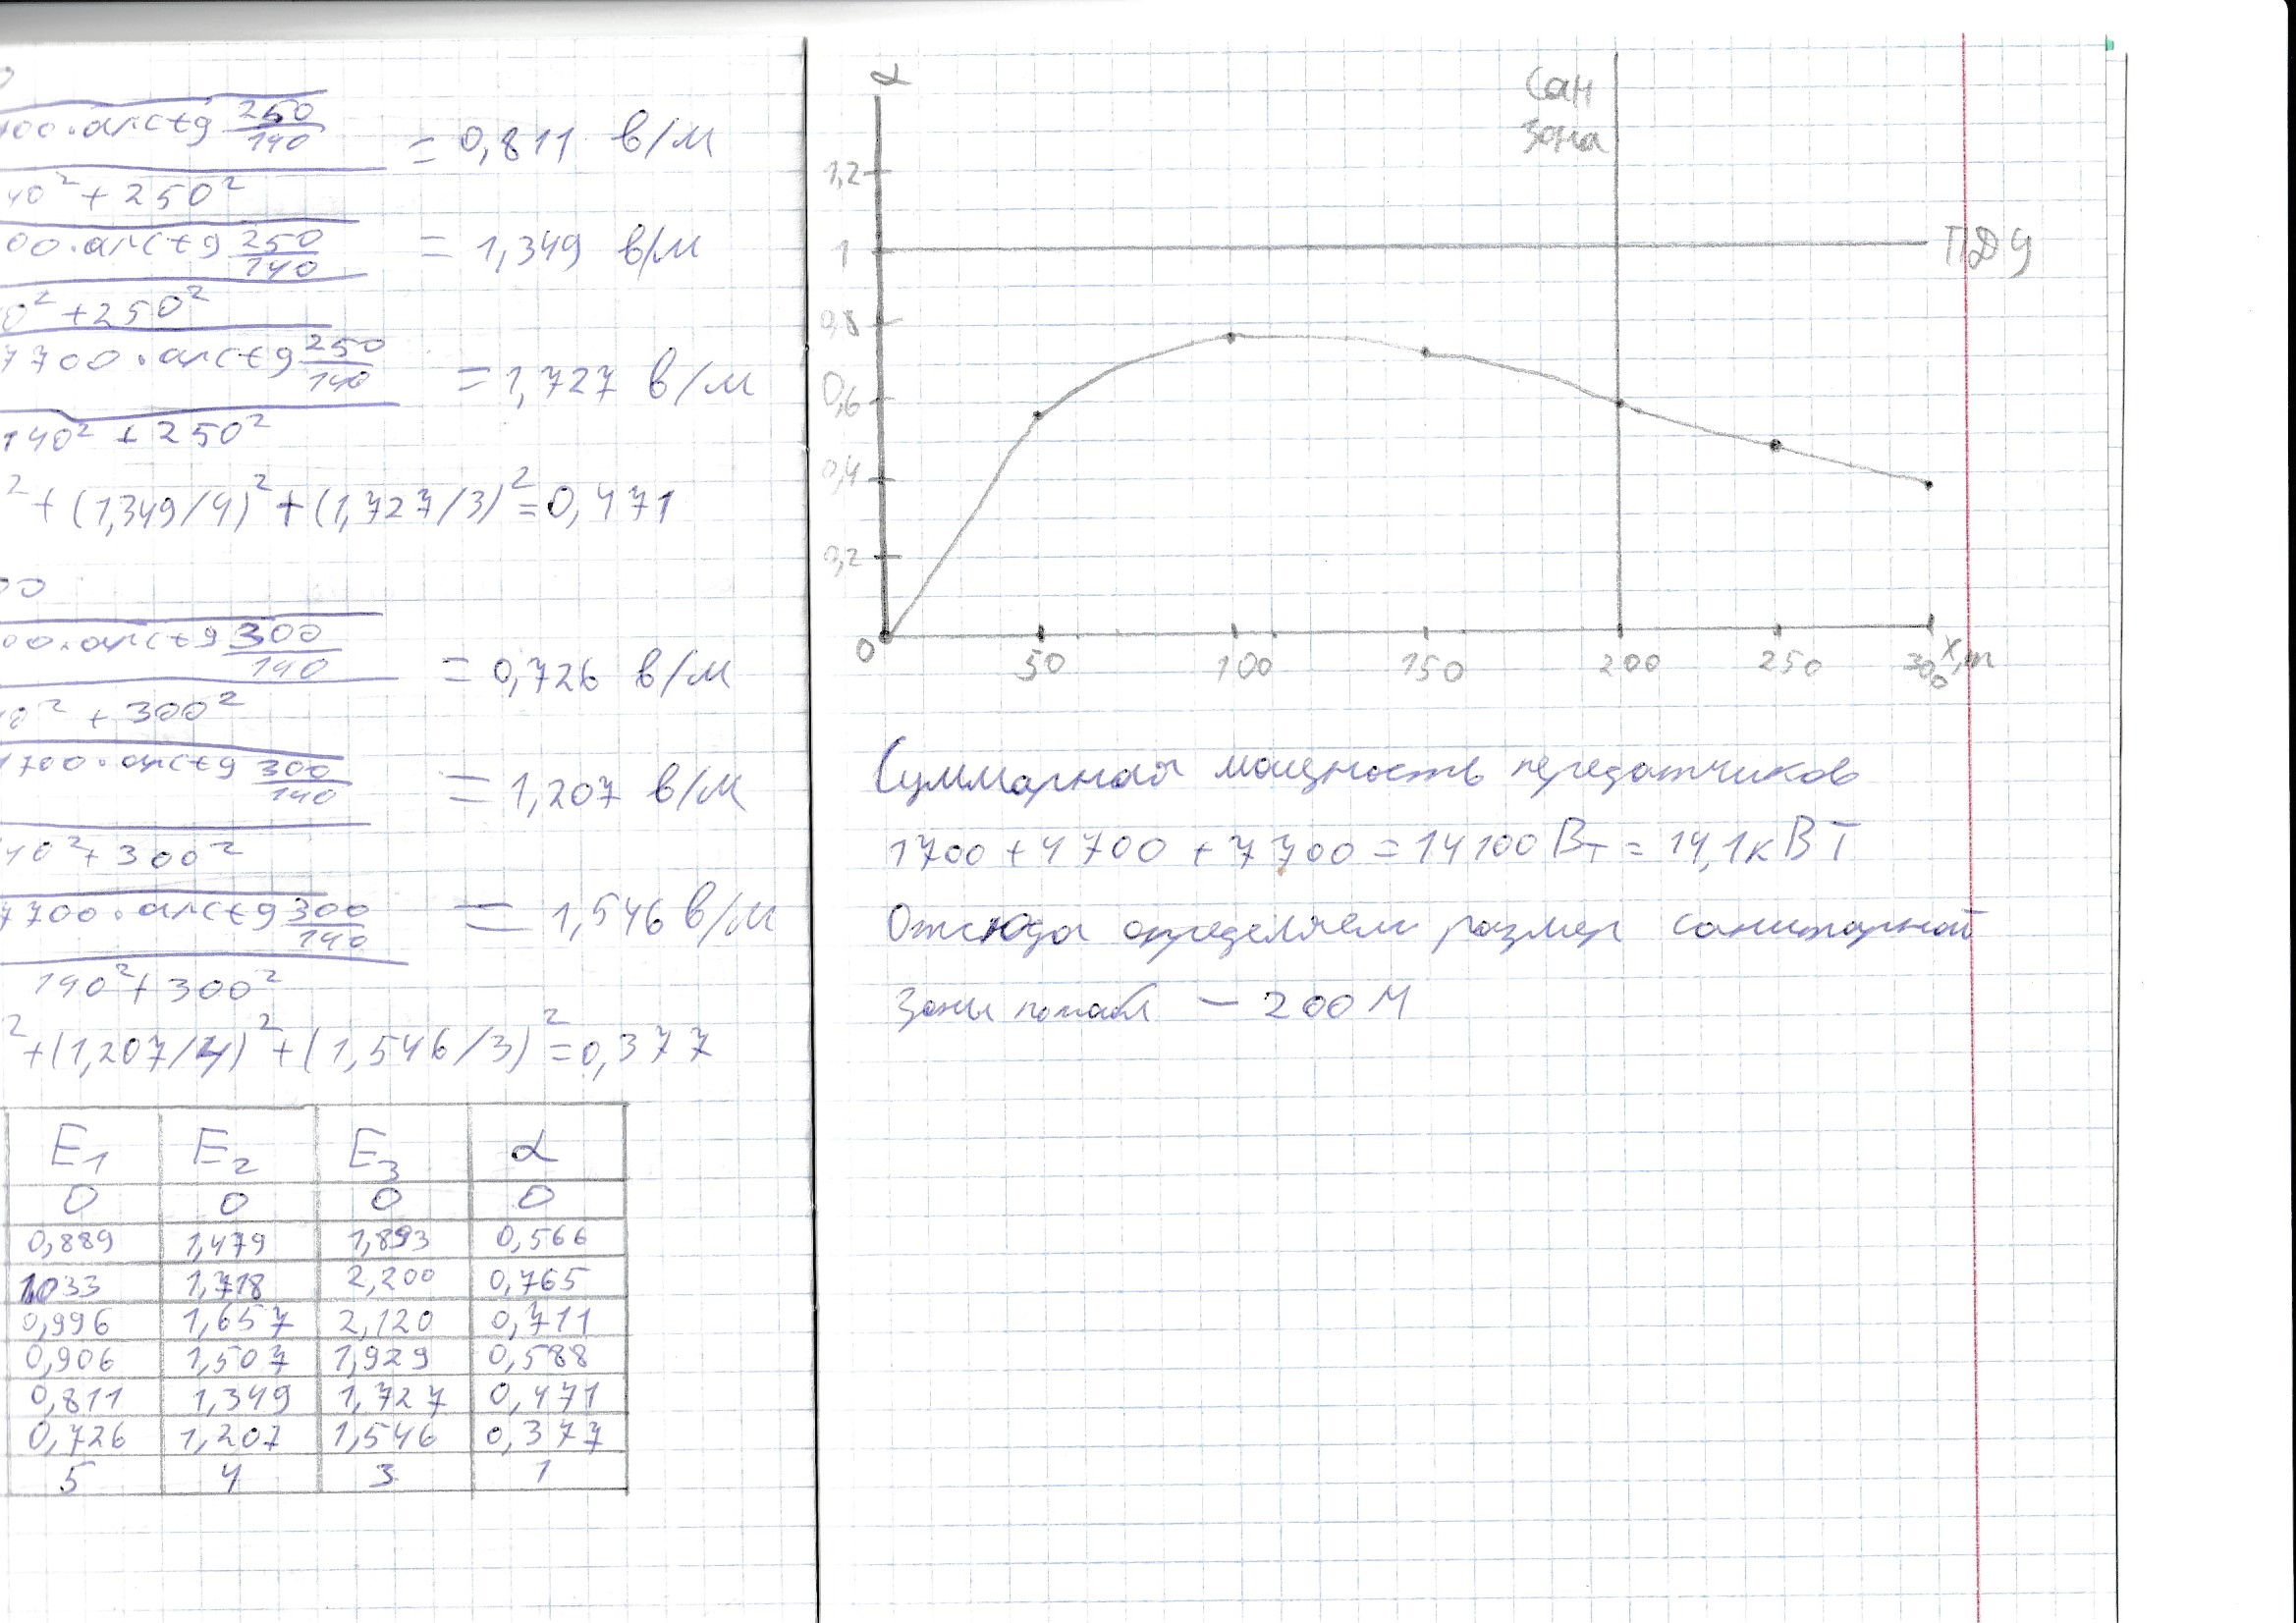 00·arctg 250/140
= 0,811 в/м
40² + 250²
00·arctg 250/140
= 1,349 в/м
0² + 250²
7700·arctg 250/140
= 1,727 в/м
140² + 250²
² + (1,349/4)² + (1,727/3)² = 0,471
00
00·arctg 300/140
= 0,726 в/м
0² + 300²
1700·arctg 300/140
= 1,207 в/м
40² + 300²
7700·arctg 300/140
= 1,546 в/м
140² + 300²
² + (1,207/4)² + (1,546/3)² = 0,377
E1 E2 E3 α
0 0 0 0
0,889 1,479 1,893 0,566
1,033 1,718 2,200 0,765
0,996 1,657 2,120 0,711
0,906 1,507 1,929 0,588
0,811 1,349 1,727 0,471
0,726 1,207 1,546 0,377
5 4 3 1
α
Сан
Зона
1,2
1
ПДУ
0,8
0,6
0,4
0,2
0 50 100 150 200 250 300 x,m
Суммарная мощность передатчиков
1700 + 4700 + 7700 = 14100 Вт = 14,1 кВТ
Отсюда определяем размер санитарной
Зоны – 200 М